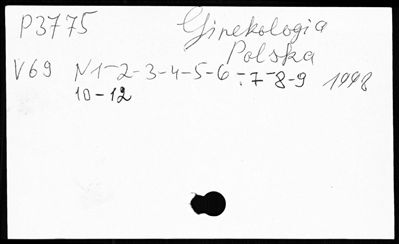 P3775 Ginekologia
Polska
V69 N1-2-3-4-5-6-7-8-9 1998
10-12